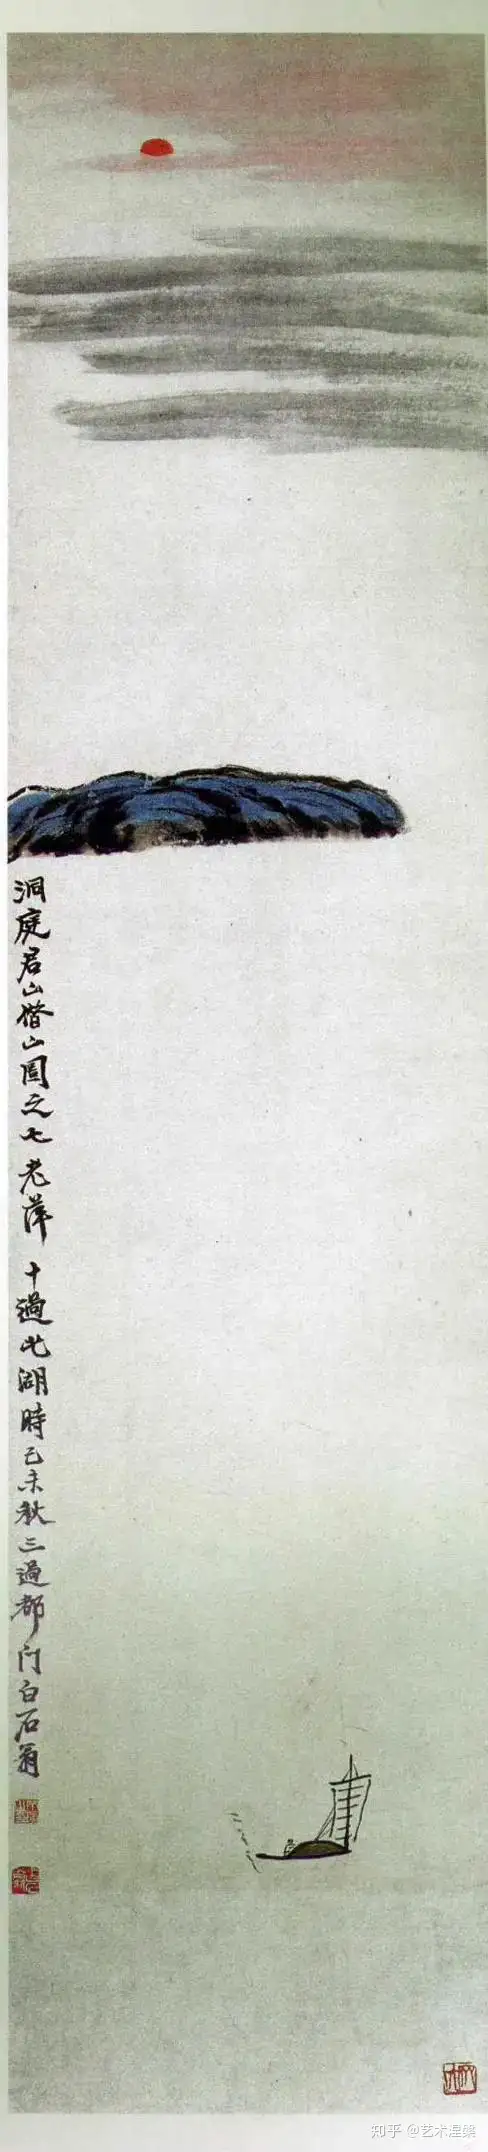 洞庭君山借山圖之七老萍十過此湖時己未秋三過都门白石翁
知乎 @艺术涅槃